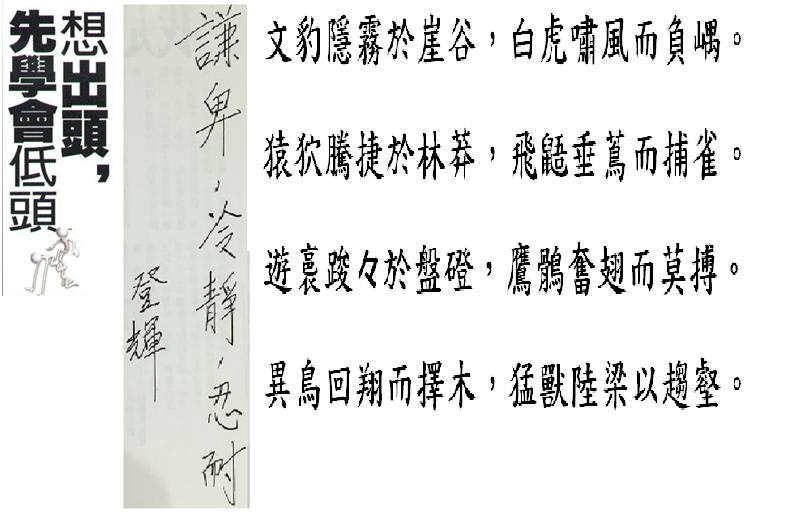 想出頭，
先學會低頭
謙卑，冷靜，忍耐
登輝
文豹隱霧於崖谷，白虎嘯風而負嵎。
猿狖騰捷於林莽，飛鼯垂蔦而捕雀。
遊踆々於盤磴，鷹鶻奮翅而莫搏。
異鳥回翔而擇木，猛獸陸梁以趨壑。